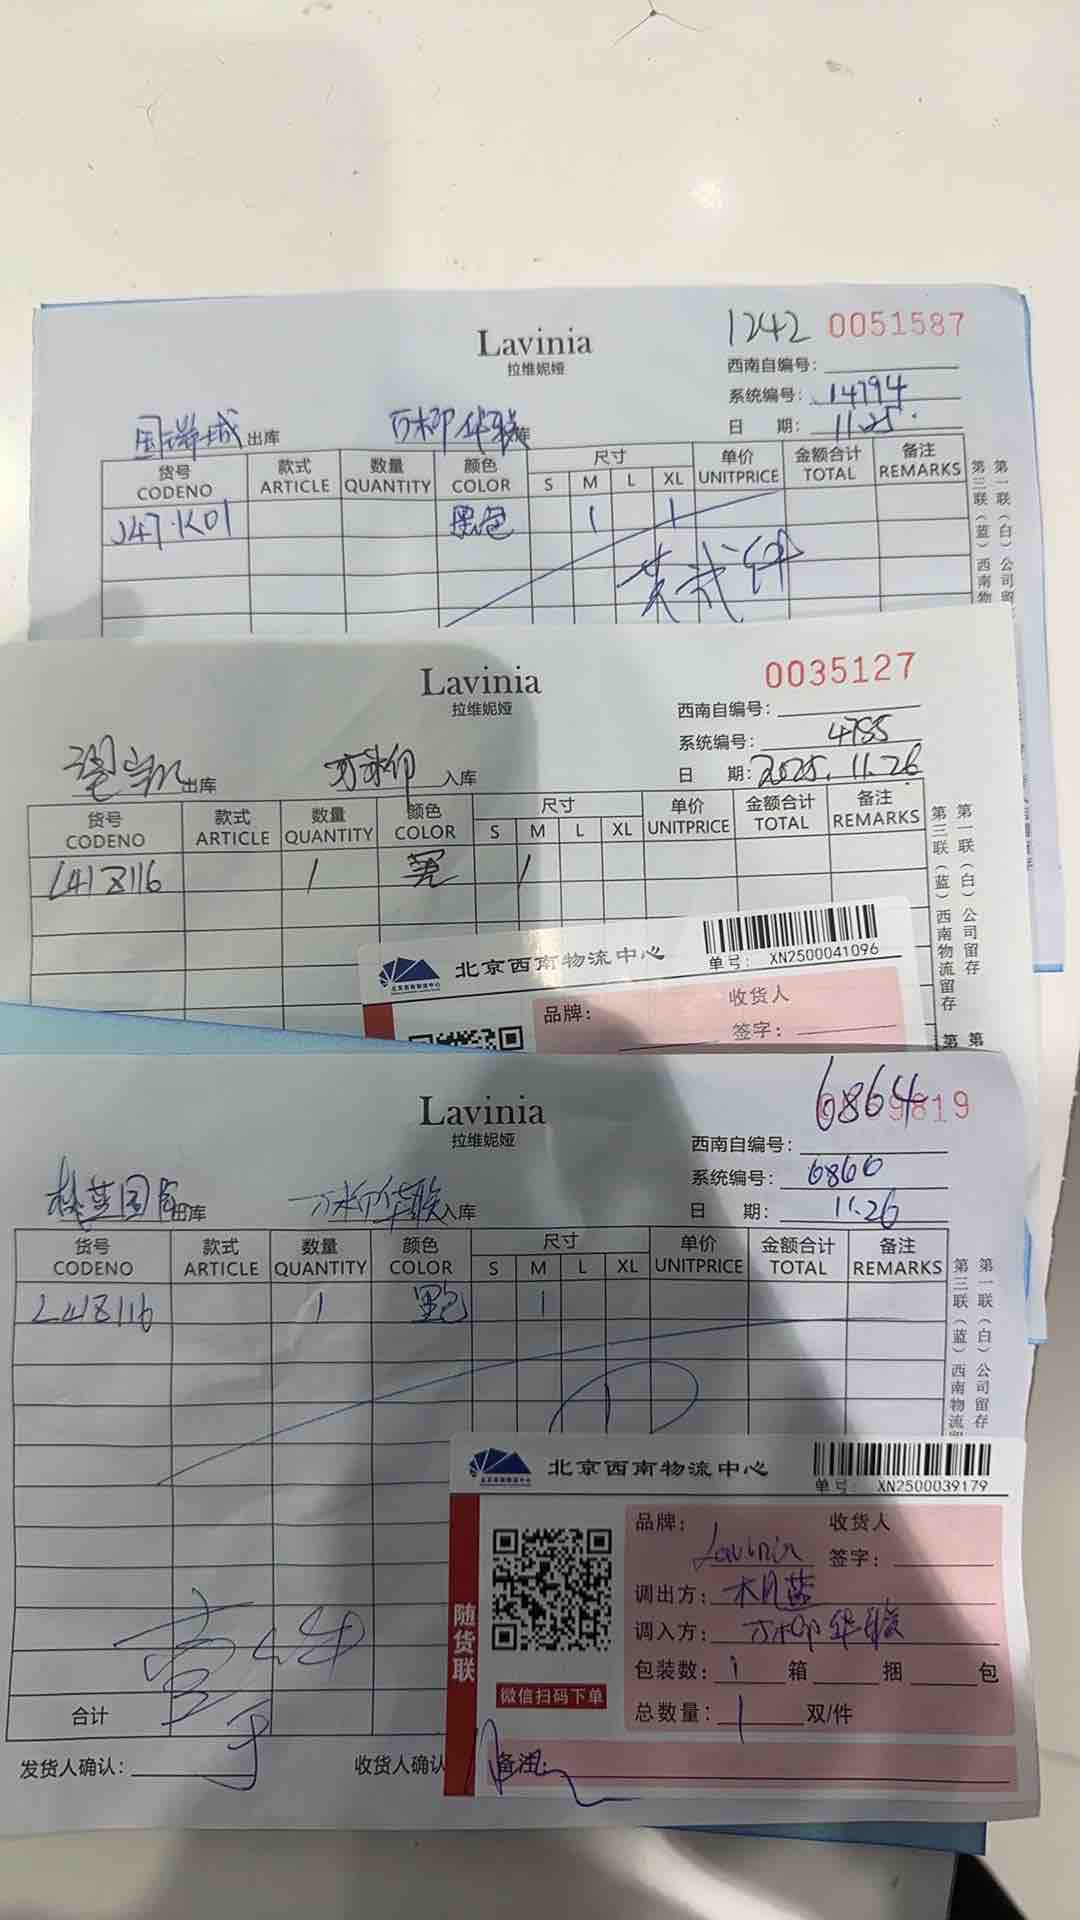 1242 0051587
Lavinia
拉维妮娅
西南自编号:
系统编号: 14794
日 期: 11.25.
国瑞城 出库 万柳华联 库
货号 款式 数量 颜色 尺寸 单价 金额合计 备注
CODENO ARTICLE QUANTITY COLOR S M L XL UNITPRICE TOTAL REMARKS
J47·K01 黑色 1 1
第一联(白)公司
第三联(蓝)西南物
0035127
Lavinia
拉维妮娅
西南自编号:
系统编号: 4755
日 期: 2025.11.26
出库 万柳 入库
货号 款式 数量 颜色 尺寸 单价 金额合计 备注
CODENO ARTICLE QUANTITY COLOR S M L XL UNITPRICE TOTAL REMARKS
L418116 1 黑 1
第一联(白)公司留存
第三联(蓝)西南物流留存
第 第
北京西南物流中心
单号: XN2500041096
品牌: 收货人
签字:
6864 9819
Lavinia
拉维妮娅
西南自编号:
系统编号: 6866
日 期: 11.26
出库 万柳华联 入库
货号 款式 数量 颜色 尺寸 单价 金额合计 备注
CODENO ARTICLE QUANTITY COLOR S M L XL UNITPRICE TOTAL REMARKS
L418116 1 黑色 1
第一联(白)公司留存
第三联(蓝)西南物流
合计
发货人确认: 收货人确认
北京西南物流中心
单号: XN2500039179
随货联
微信扫码下单
品牌: Lavinia 收货人
签字:
调出方:
调入方: 万柳华联
包装数: 1 箱 捆 包
总数量: 1 双/件
备注: